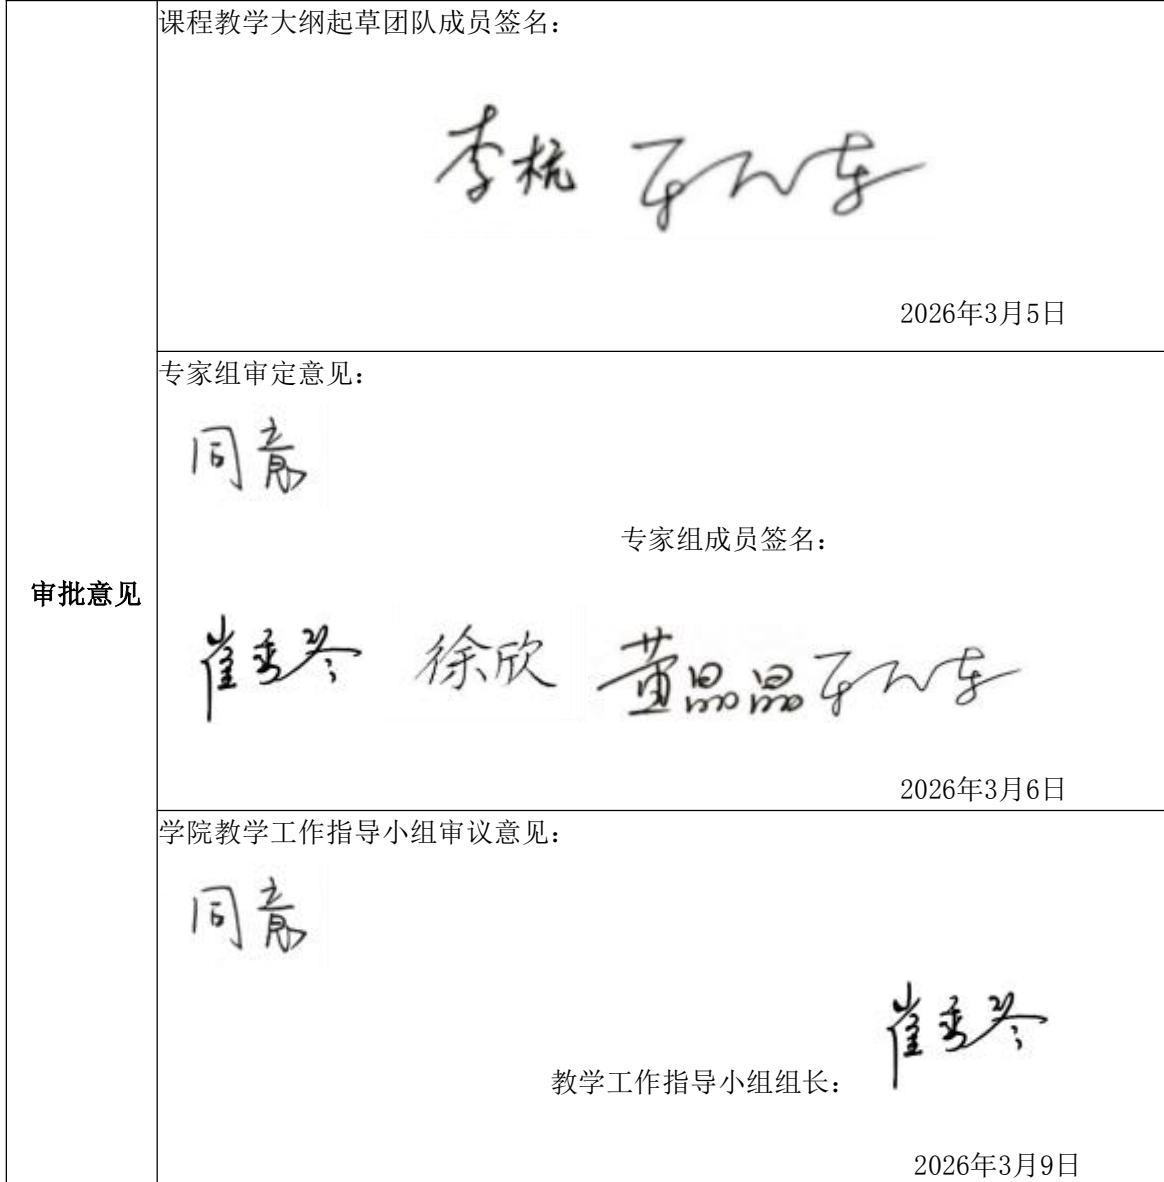 课程教学大纲起草团队成员签名：
李杭
2026年3月5日
专家组审定意见：
同意
专家组成员签名：
审批意见
崔秀琴 徐欣 黄晶晶
2026年3月6日
学院教学工作指导小组审议意见：
同意
崔秀琴
教学工作指导小组组长：
2026年3月9日